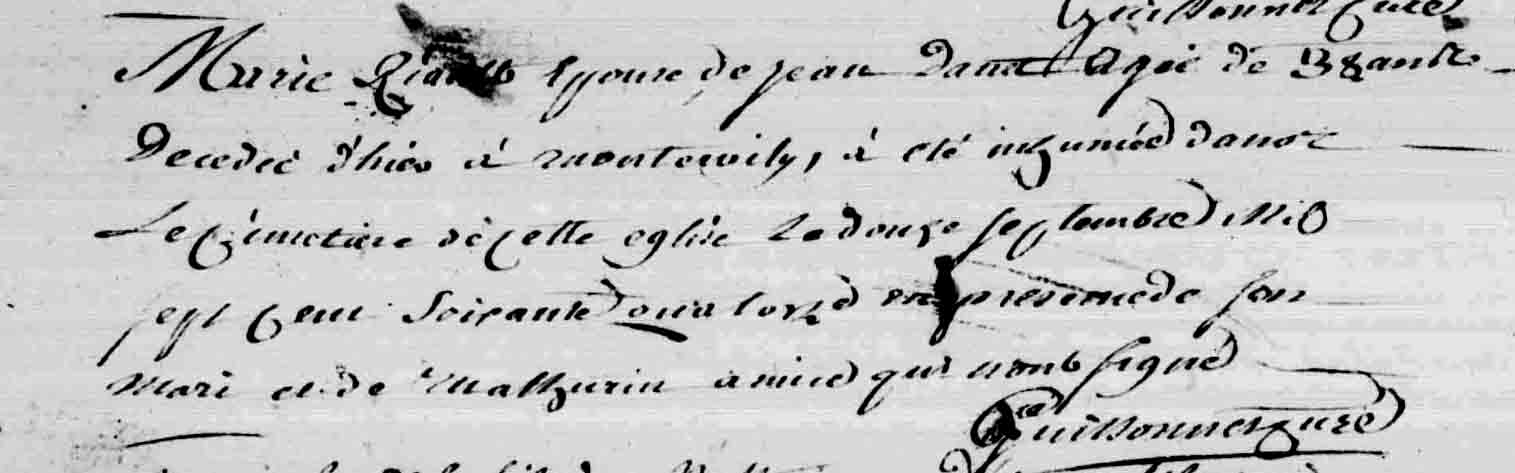 Guissonnet Curé
Marie épouse de jean agèè de 38 ans
Decedèè d'hier à à été inhumée dans
Le cimetiere dè cette eglise Le douze septembre mil
sept cent Soixante quatorze en presence de son
mari et de Mathurin qui n'ont signé
Guissonnet curé